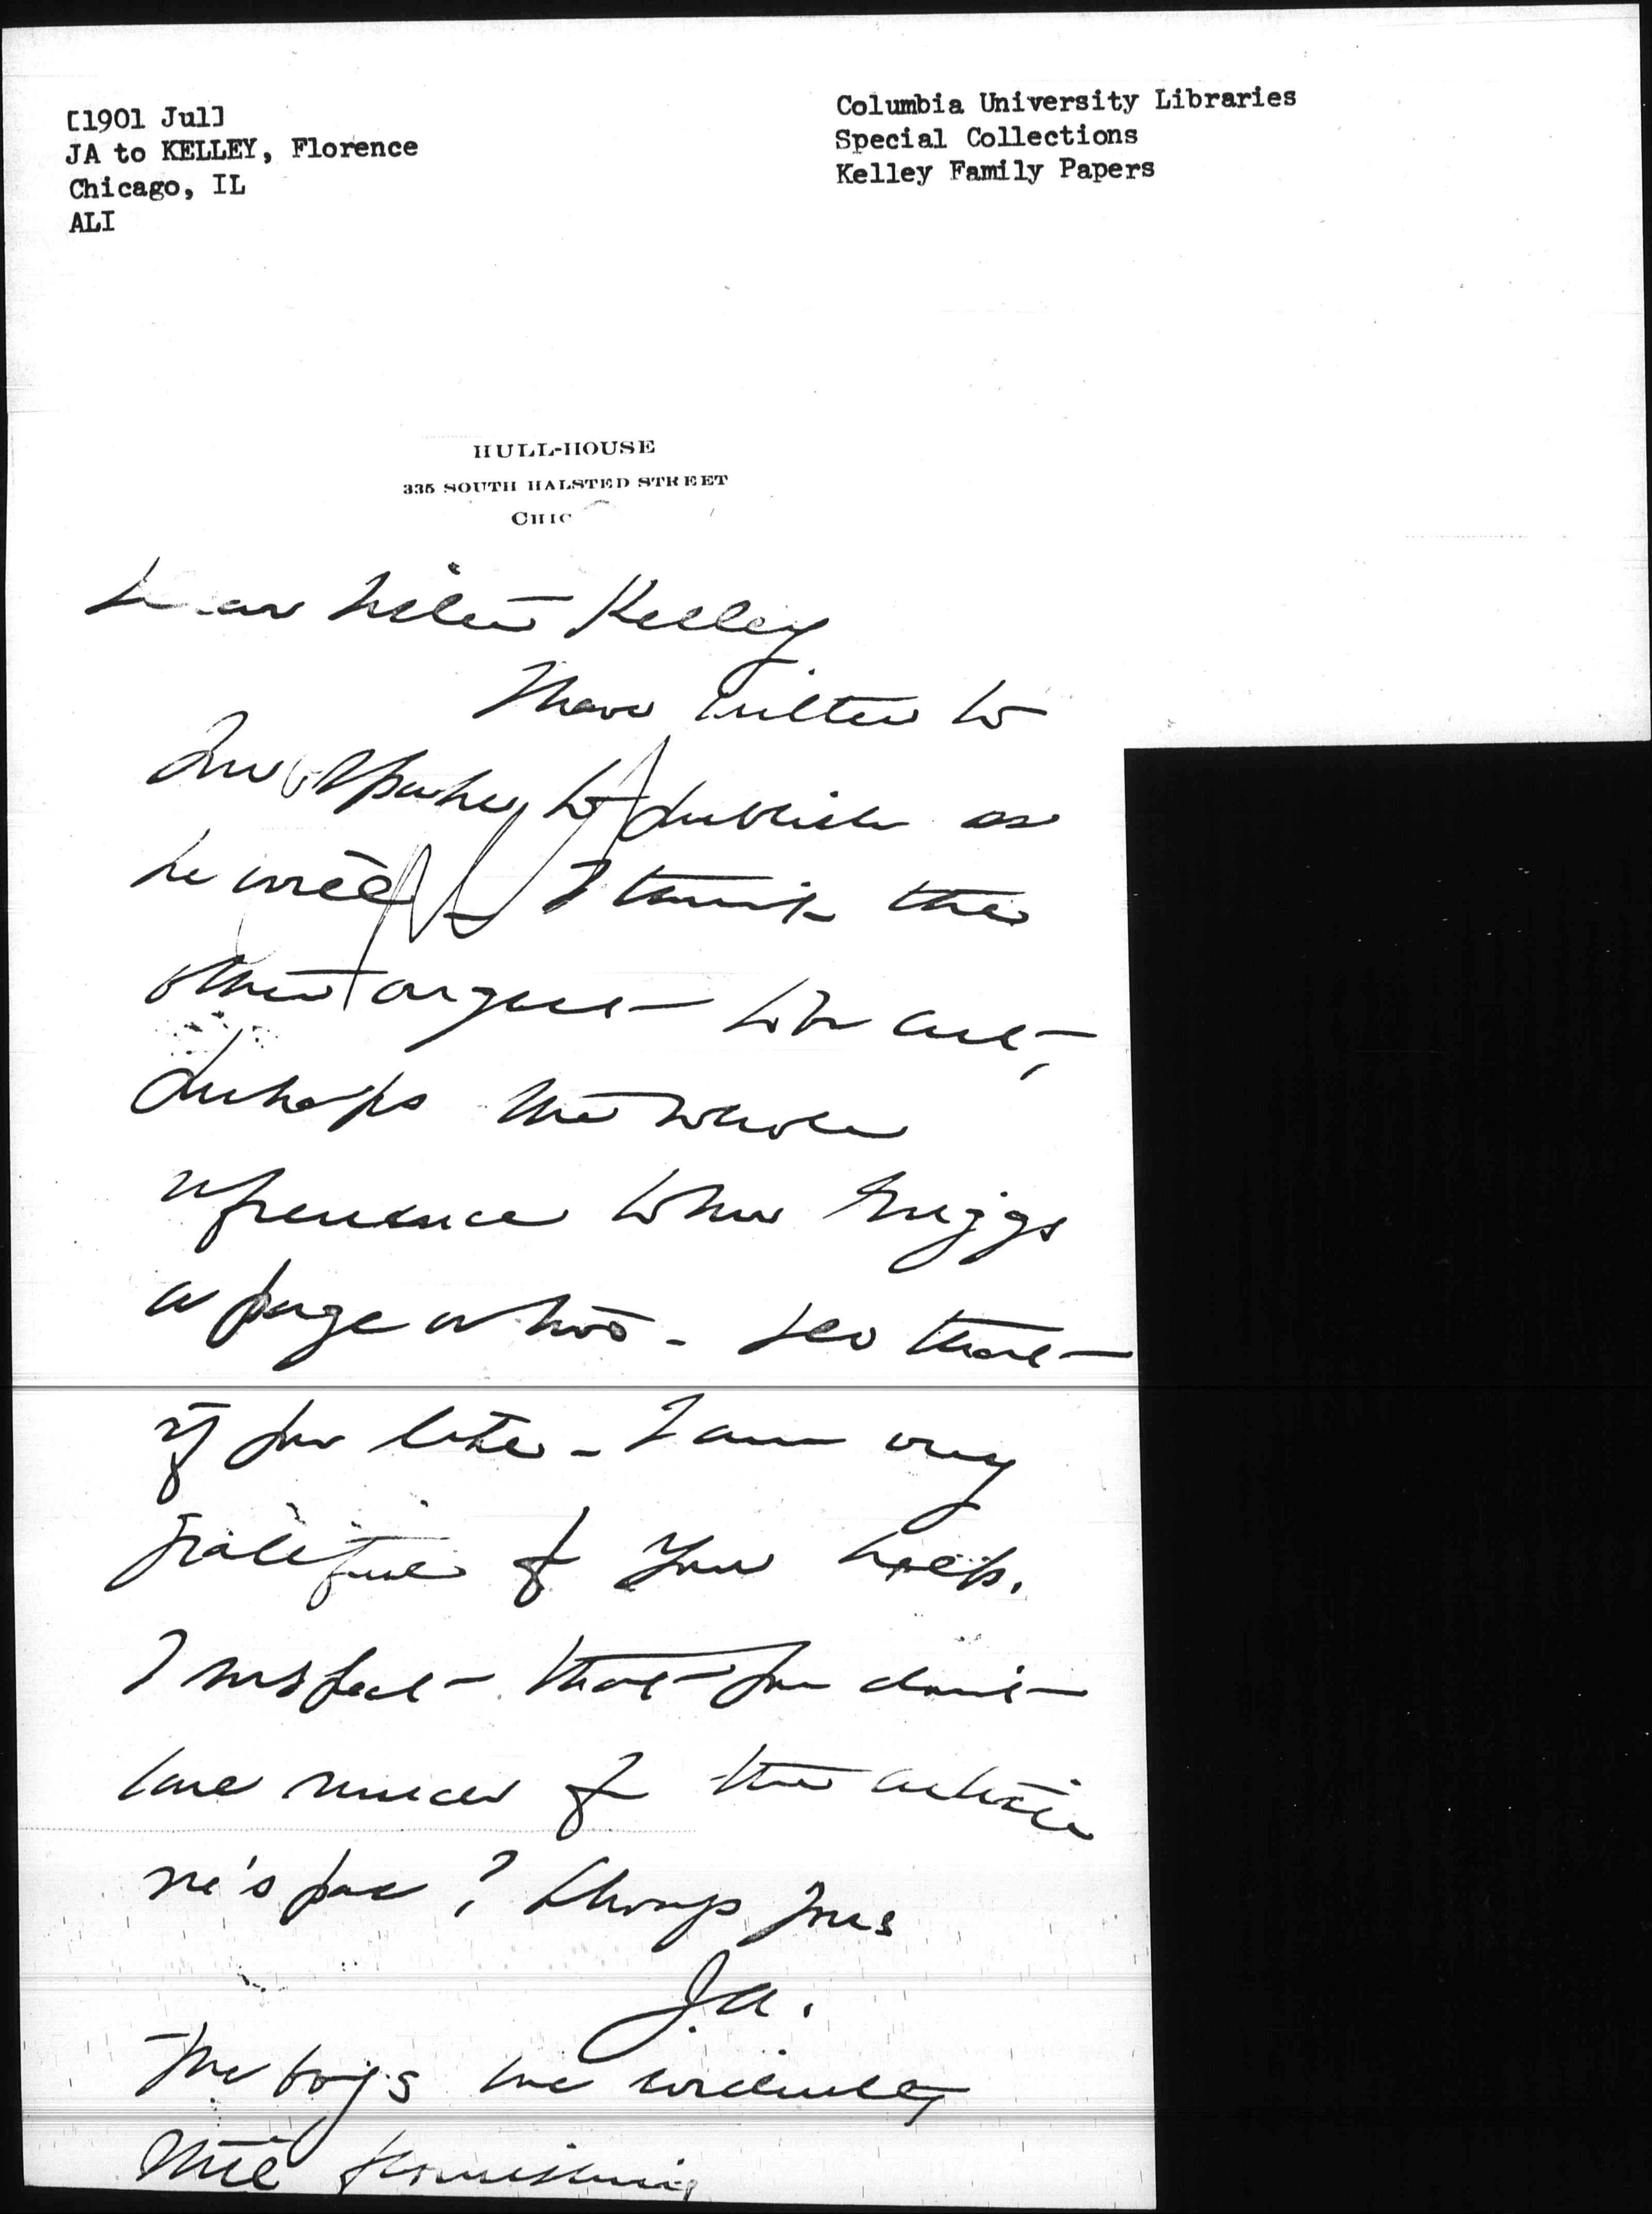 [1901 Jul]
JA to KELLEY, Florence
Chicago, IL
ALI
Columbia University Libraries
Special Collections
Kelley Family Papers
HULL-HOUSE
335 SOUTH HALSTED STREET
CHIC
Dear Sister Kelley
I have written to
Mr to publish as
he will — I think the
other ought to be cut,
perhaps the whole
reference to Mr Griggs
a page or two. See that
if you like. I am very
grateful for your help.
I suspect that you don't
have much of the article
n'est pas? Always yours
J.A.
The boys are evidently
still flourishing